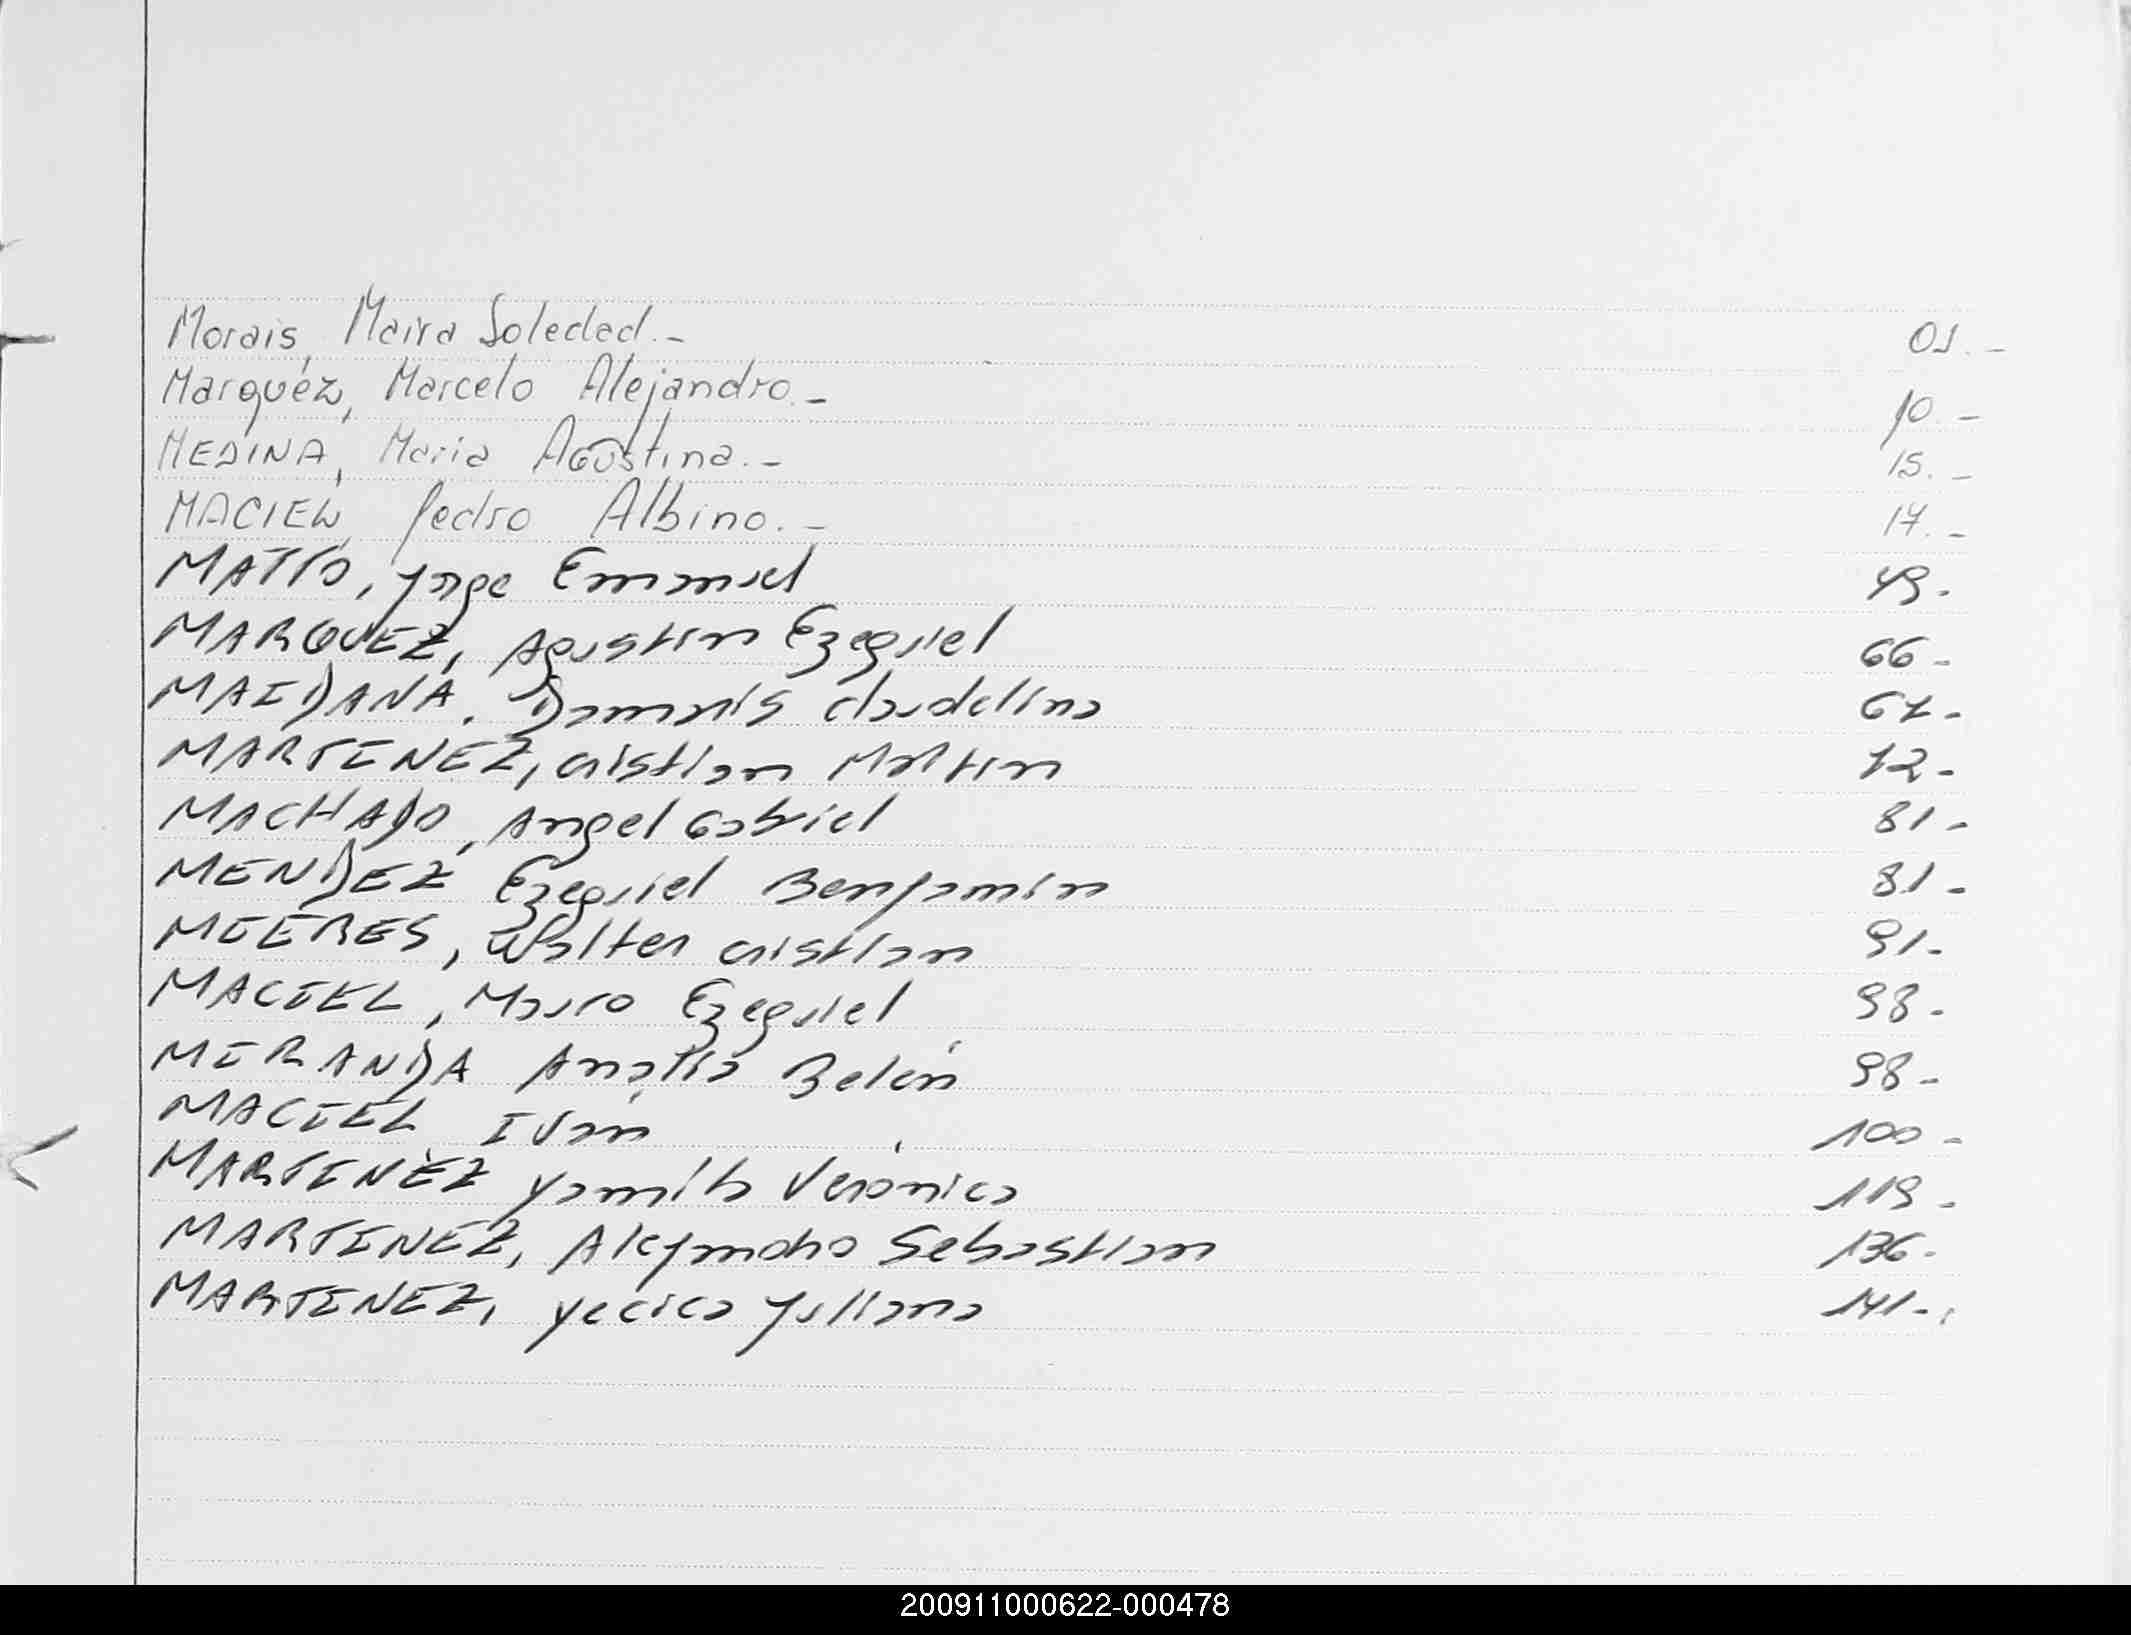 Morais, Maira Soledad.- 01.-
Marquéz, Marcelo Alejandro.- 10.-
MEDINA, Maria Agostina.- 15.-
MACIEL, Pedro Albino.- 17.-
MATTO, Jorge Emanuel 49.
MARQUEZ, Agustin Ezequiel 66-
MAIDANA, Damaris claudelina 67-
MARTINEZ, cristian Martin 72-
MACHADO, Angel Gabriel 81-
MENDEZ Ezequiel Benjamin 81-
MIERES, Walter cristian 91-
MACIEL, Mauro Ezequiel 98-
MIRANDA Analía Belén 98-
MACIEL Iván 100-
MARTINEZ Yamila Verónica 119-
MARTINEZ, Alejandro Sebastian 136-
MARTINEZ, Yecica Juliana 141-.
200911000622-000478